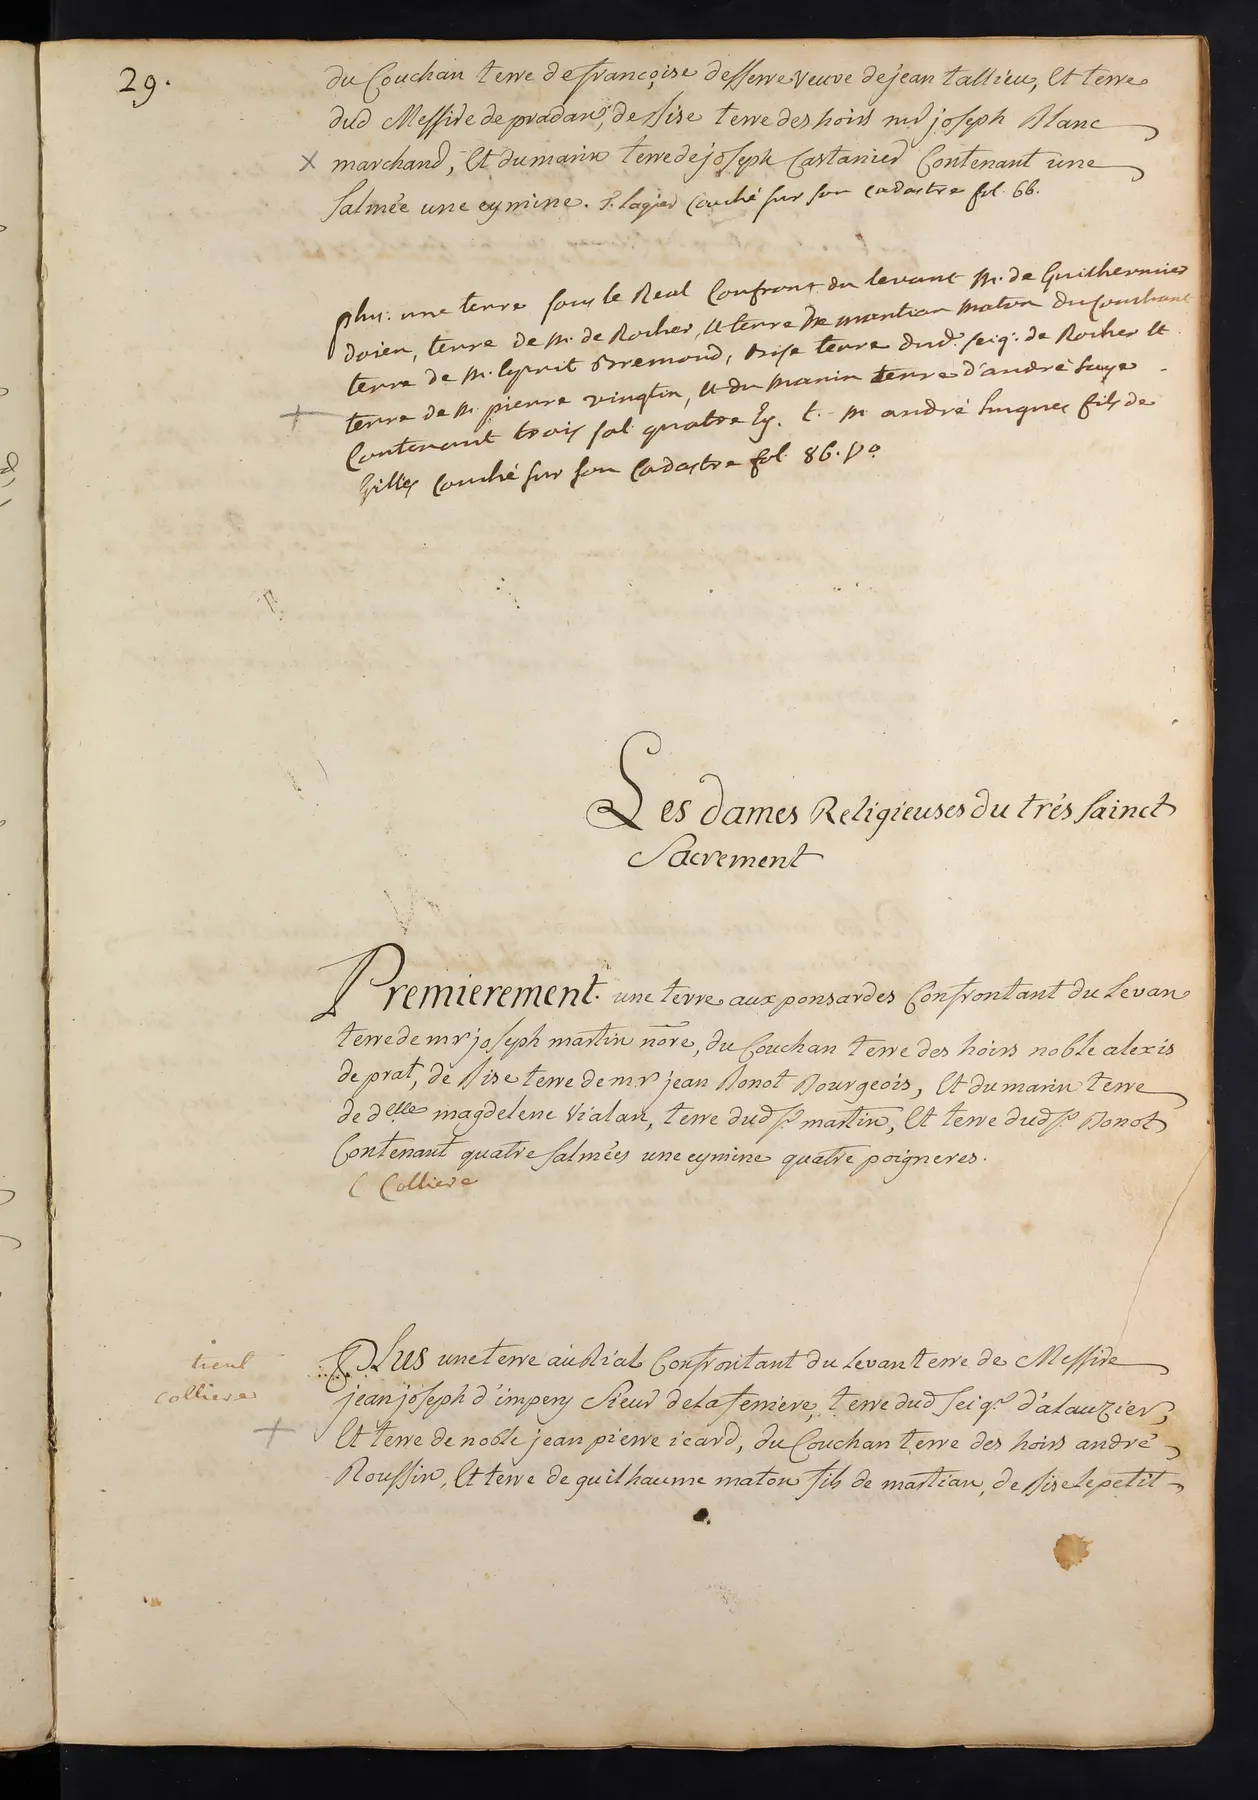 29.
du Couchan terre de françoise desserre veuve de jean tallieu, Et terre
dud Messire de pradans, de Bise terre des hoirs mr joseph Blanc
× marchand, Et du marin terre de joseph Castanier Contenant une
salmée une eymine. S. lagier Couché sur son cadastre fol. 66.
plus. une terre sous le Real Confront du levant Mr. de Guilhermier
doien, terre de Mr. de Rocher, et terre de mantian maton du Couchant
terre de Mr. esprit Bremond, Bise terre dud. seigr. de Rocher et
+ terre de Mr. pierre vingtin, et du marin terre d'andré saye
Contenant trois sal. quatre Ey. t. Mr andré hugues fils de
gilles Couché sur son Cadastre fol. 86. vo.
Les dames Religieuses du trés sainct
Sacrement
Premierement. une terre aux ponsardes Confrontant du Levan
terre de mr joseph martin nore, du Couchan terre des hoirs noble alexis
de prat, de Bise terre de mr jean Bonot Bourgeois, Et du marin terre
de delle magdelene vialan, terre dud sr. martin, Et terre dud sr. Bonot
Contenant quatre salmées une eymine quatre poigneres.
C Colliere
Plus une terre au Rial Confrontant du Levan terre de Messire
tient
colliere
jean joseph d'impery Sieur de la feriere, terre dud seigr. d'alauzier,
+ Et terre de noble jean pierre icard, du Couchan terre des hoirs andré
Roussin, Et terre de guilhaume maton fils de mastian, de Bise le petit